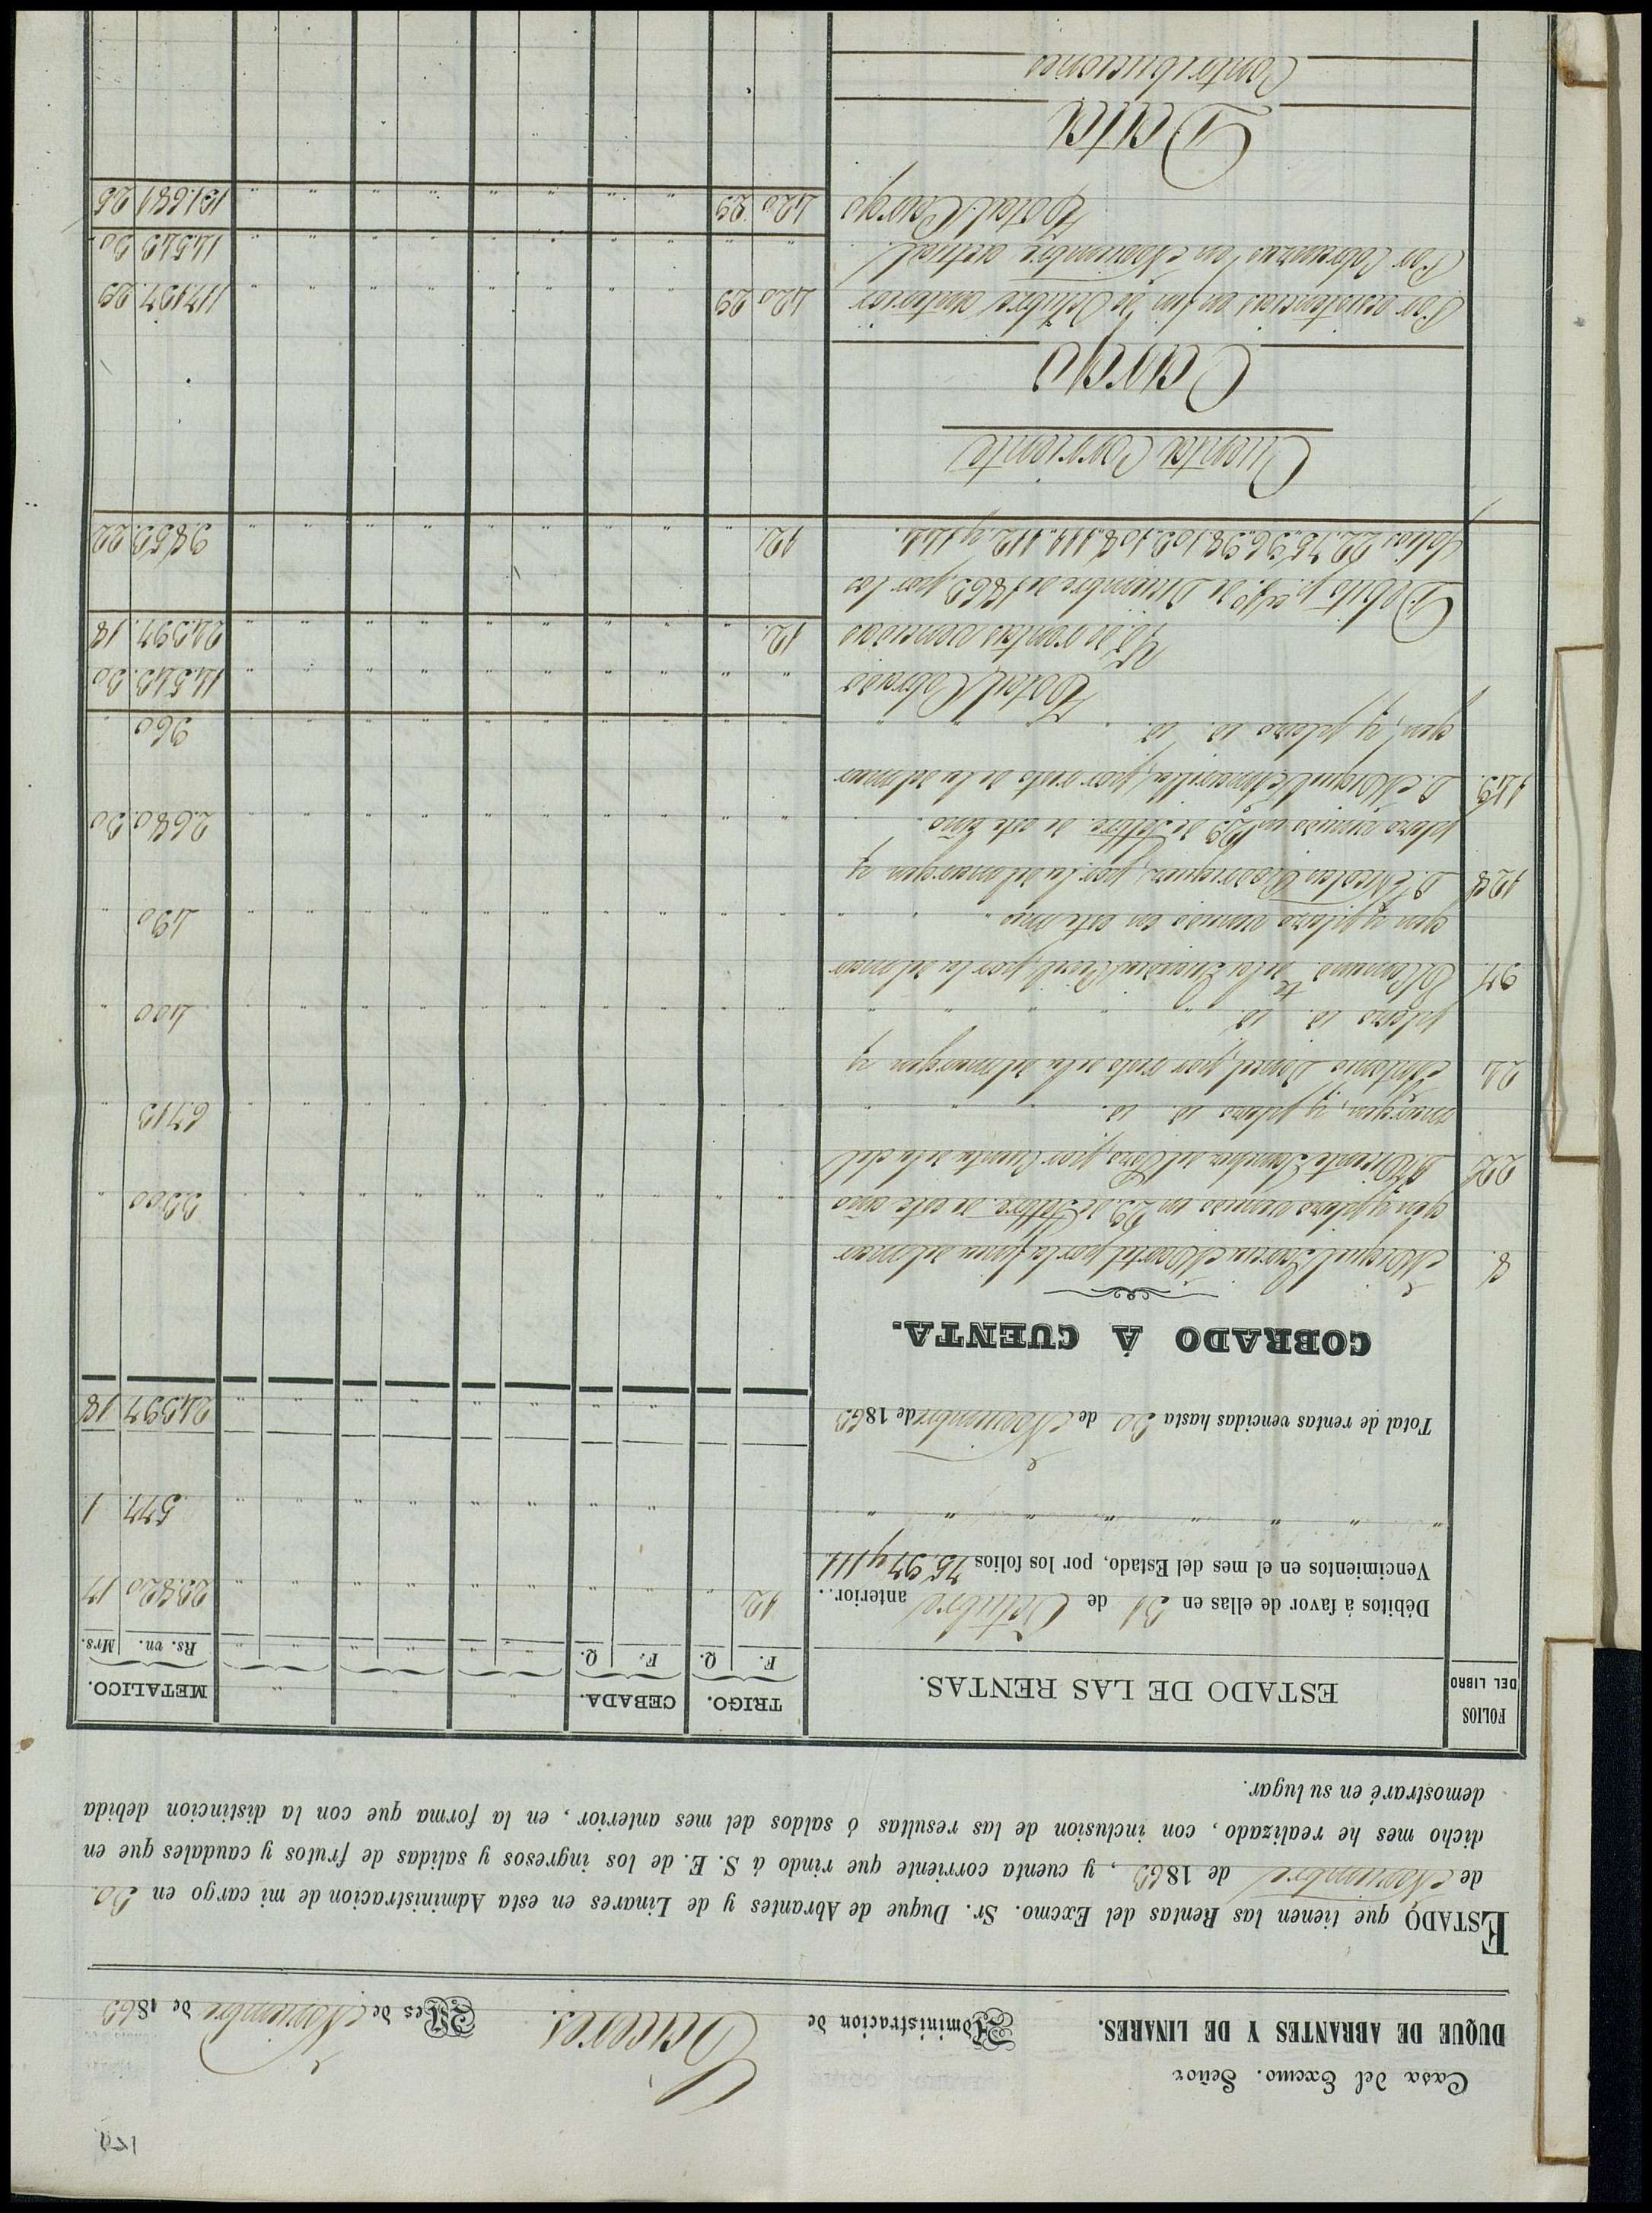 Casa del Excmo. Señor
DUQUE DE ABRANTES Y DE LINARES.
Administracion de Cáceres.
Mes de Noviembre de 1863
ESTADO que tienen las Rentas del Excmo. Sr. Duque de Abrantes y de Linares en esta Administracion de mi cargo en 30.
de Noviembre de 1863, y cuenta corriente que rindo á S. E. de los ingresos y salidas de frutos y caudales que en
dicho mes he realizado, con inclusion de las resultas ó saldos del mes anterior, en la forma que con la distincion debida
demostraré en su lugar.
FOLIOS DEL LIBRO
ESTADO DE LAS RENTAS.
TRIGO. CEBADA. METALICO.
F. Q. F. Q. Rs. vn. Mrs.
Débitos á favor de ellas en 31 de Octubre anterior.. 12 " 23.820 17
Vencimientos en el mes del Estado, por los folios 75, 97 y 111.
" " " " " " " " 577. 1
Total de rentas vencidas hasta 30 de Noviembre de 1863 24,397 18
COBRADO Á CUENTA.
8. Miguel Garcia Martel por la finca del mar
gen y plazo vencido en 29 de Settbre. de este año 3300 "
22 D. Vicente del Toro, por cuenta de la del
margen, y plazo id. id. 6713 "
24 Antonio Donel, por resto de la del margen y
plazo id. id. 400 "
97. El Comand.te de la Guardia Civil, por la del mar
gen y plazo vencido en este mes 490 "
128 D. Nicolas Rodriguez, por la del margen y
plazo vencido en 29 de Settbre. de este año. 2.680.30
143. D. Miguel Amarilla, por resto de la del mar
gen, y plazo id. id. 960
Total Cobrado 14,543.30
Yd. de rentas vencidas 12. 24.397. 18
Débito p.a 1.º de Diciembre de 1863, por los
folios 22, 75, 96, 98, 103, 108, 111, 112, y 144. 12. 9.853.22
Cuenta Corriente
Cargo
Por existencias en fin de Octubre anterior 420 29 117.137.29
Por Cobranzas en Noviembre actual. " " 14,543 30
Total Cargo 420 29 131.681 25
Data
Contribuciones